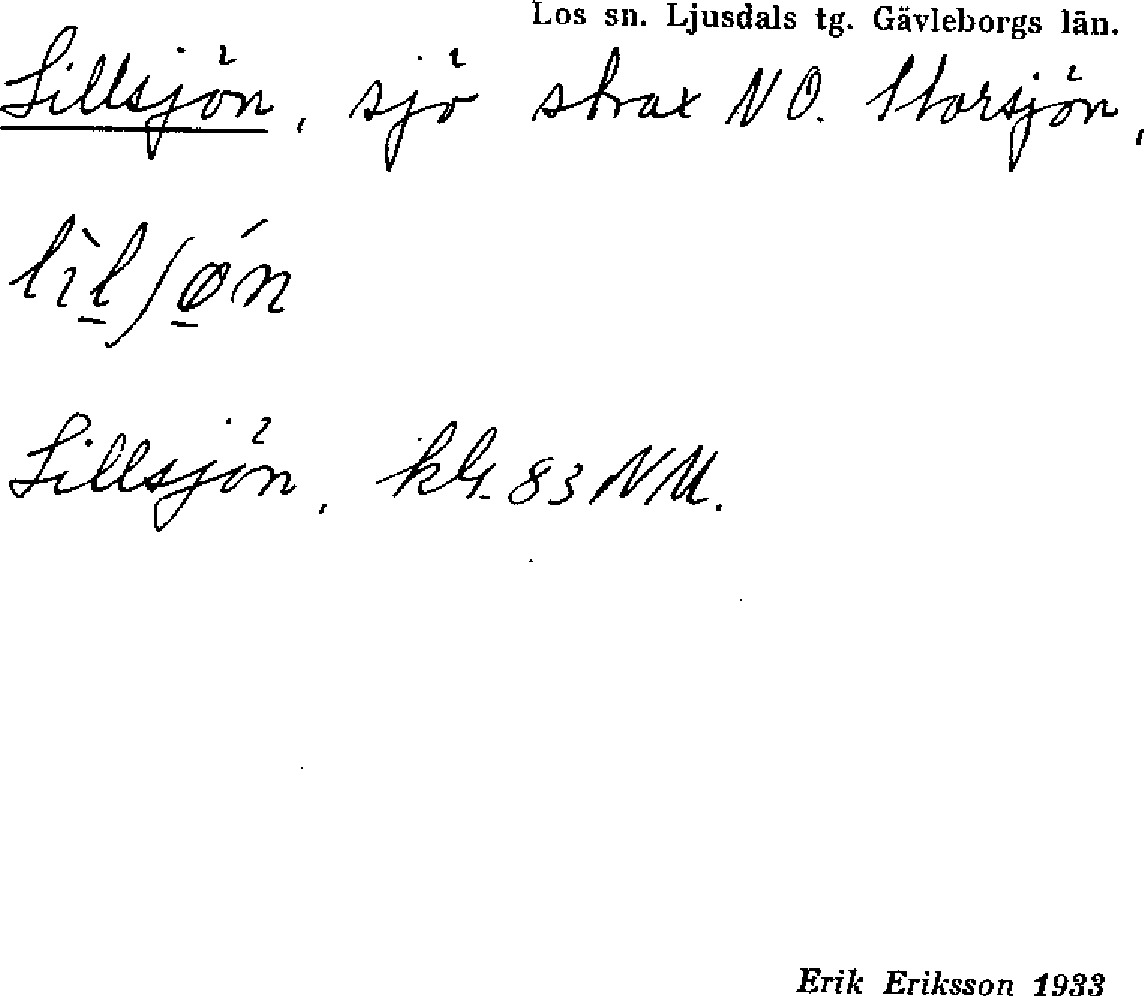 Los sn. Ljusdals tg. Gävleborgs län.
Lillsjön, sjö strax NO. Storsjön,
lìl̠ʃǿ̠n
Lillsjön, kbl. 83 NV.
Erik Eriksson 1933